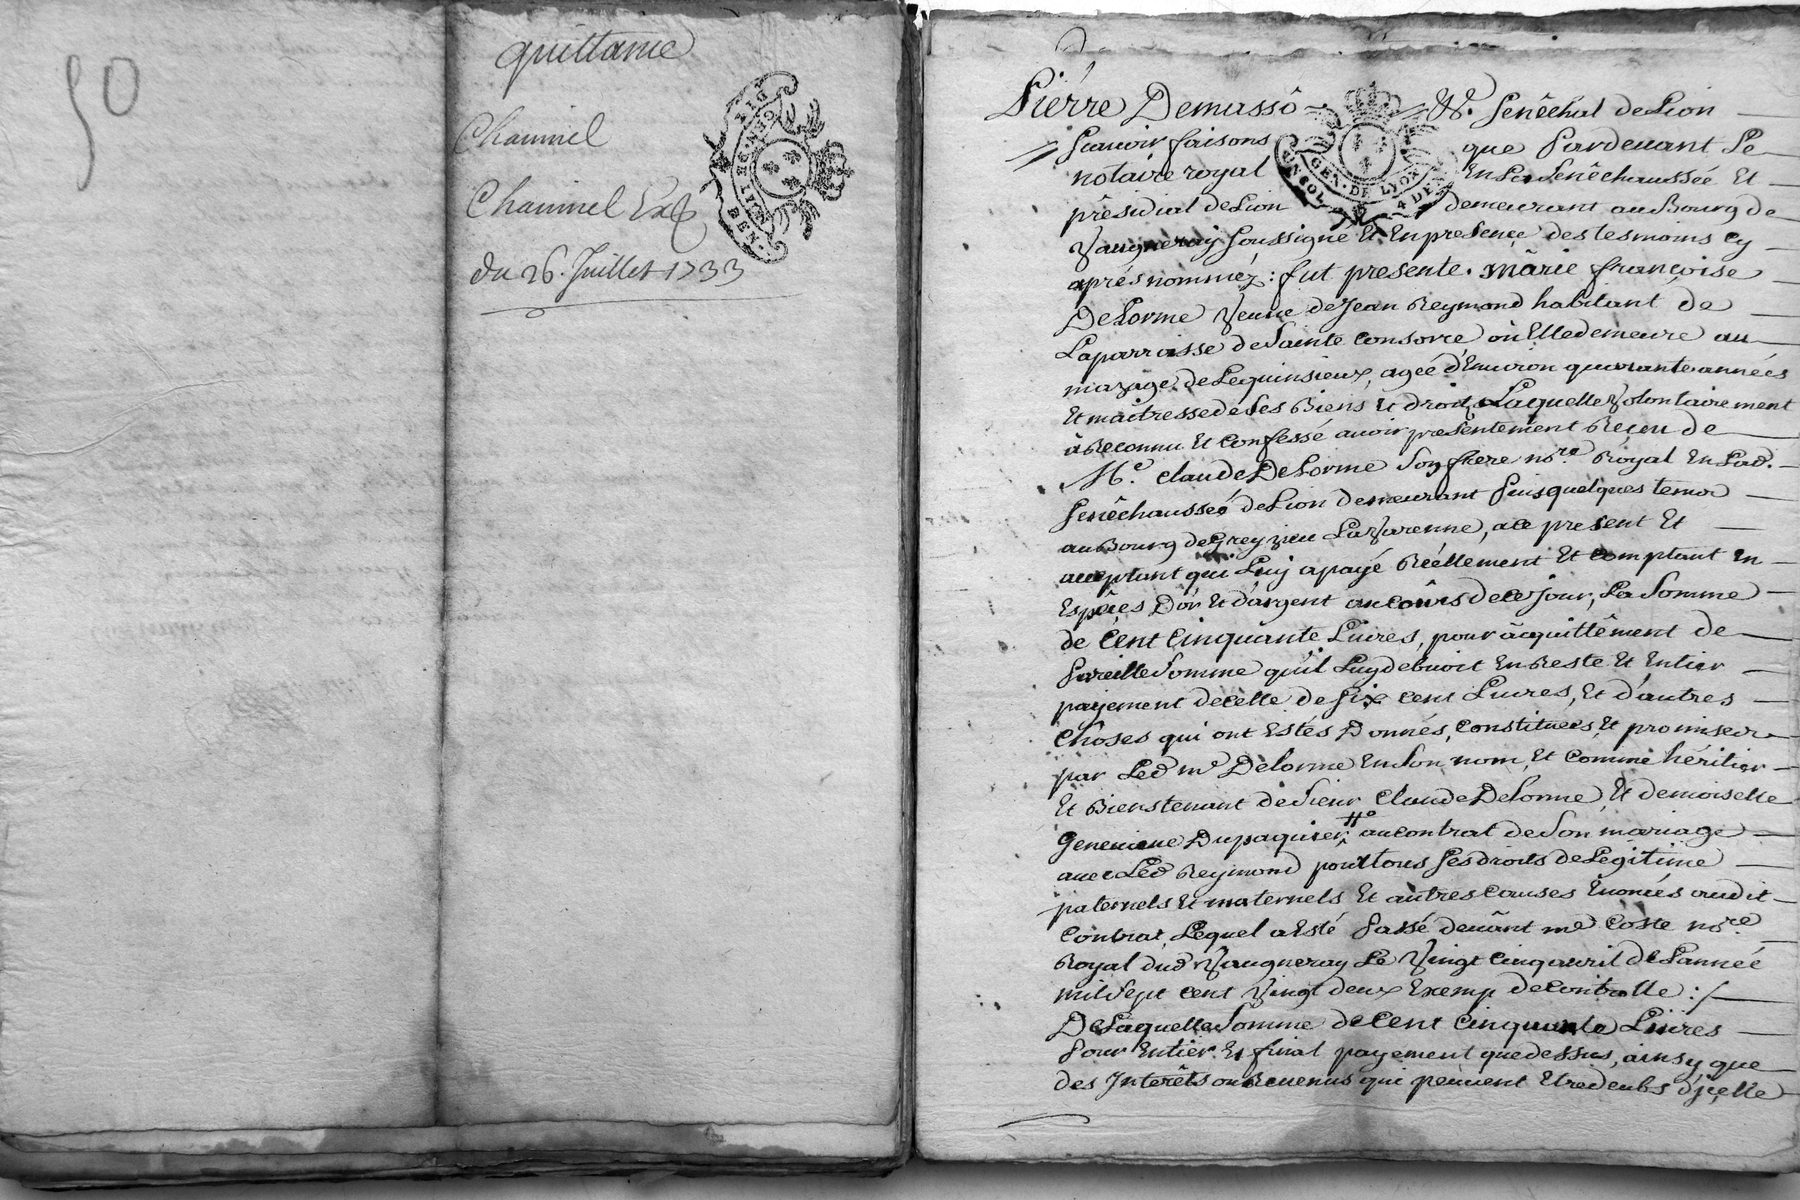 50
quittance
Chaumel
Chaumel Exp
du 26. Juillet 1733
GEN. DE LYON
DEN.
Piérre Demassô W. Senêchal de Lion
Scauoir faisons que Pardeuant Le
notaire royal En La Senêchaussée Et
présidial de Lion demeurant au Bourg de
Vaugneray soussigné Et En presence des tesmoins cy
aprés nommez : fut presente. mârie françoise
DeLorme Veuue de Jean Reymond habitant de
La parroisse de Sainte Consorce où Elle demeure au
mazage de Lequinsieux, agée d'Enuiron quarante années
Et maîtresse de ses Biens Et droits, Laquelle Volontairement
à Reconnu Et Confessé auoir presentement Reçeu de
Me. Claude DeLorme Son frere nore. Royal En Lad.
Senêchaussée de Lion demeurant Puis quelques tems
au Bourg de Grezieu La Varenne, a ce present Et
acceptant qui Luy a payé Réellement Et Comptant En
Espêces D'or Et d'argent au Cours de ce jour, La Somme
de Cent Cinquante Liures, pour âcquittêment de
Pareille Somme qu'il Luy debuoit En Reste Et Entier
payement de celle de Six Cent Liures, Et d'autres
Chôses qui ont Estés Donnés, Constituées, Et promises
par Led me Delorme En Son nom, Et Comme héritier
Et Bienstenant de Sieur Claude DeLorme, Et demoiselle
Geneuieue Dupaquier, au Contrat de Son mariage
auec Led Reymond pour tous Ses droits de Légitime
paternels Et maternels Et autres Causes Enoncés audit
Contrat, Lequel a Esté Passé deuânt me Coste nore
Royal dud Vaugneray Le Vingt Cinq auril de L'année
mil Sept Cent Vingt deux Exemp de Controlle :/
De Laquelle Somme de Cent Cinquante Liures
Pour Entier Et final payement que dessus, ainsy que
des Interêts ou Reuenus qui peuuent Etre deubs d'jcelle